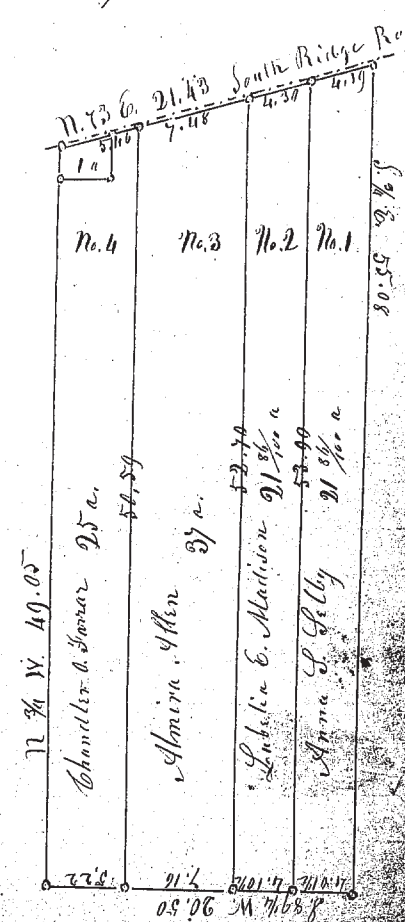 N. 73 E. 21.43 South Ridge Ro
5.46
7.48
4.30
4.19
1 a
No. 4
No. 3
No. 2
No. 1
S. ¾ E. 55.08
N ¾ W. 49.05
Chandler O. Farrar 25 a.
50.59
Almira Allen 37 a.
52.70
Loubelia E. Madison 21 86/100 a
53.90
Anna S. Selby 21 86/100 a
5.22
7.16
4.10½
4.01½
S. 89¼ W. 20.50